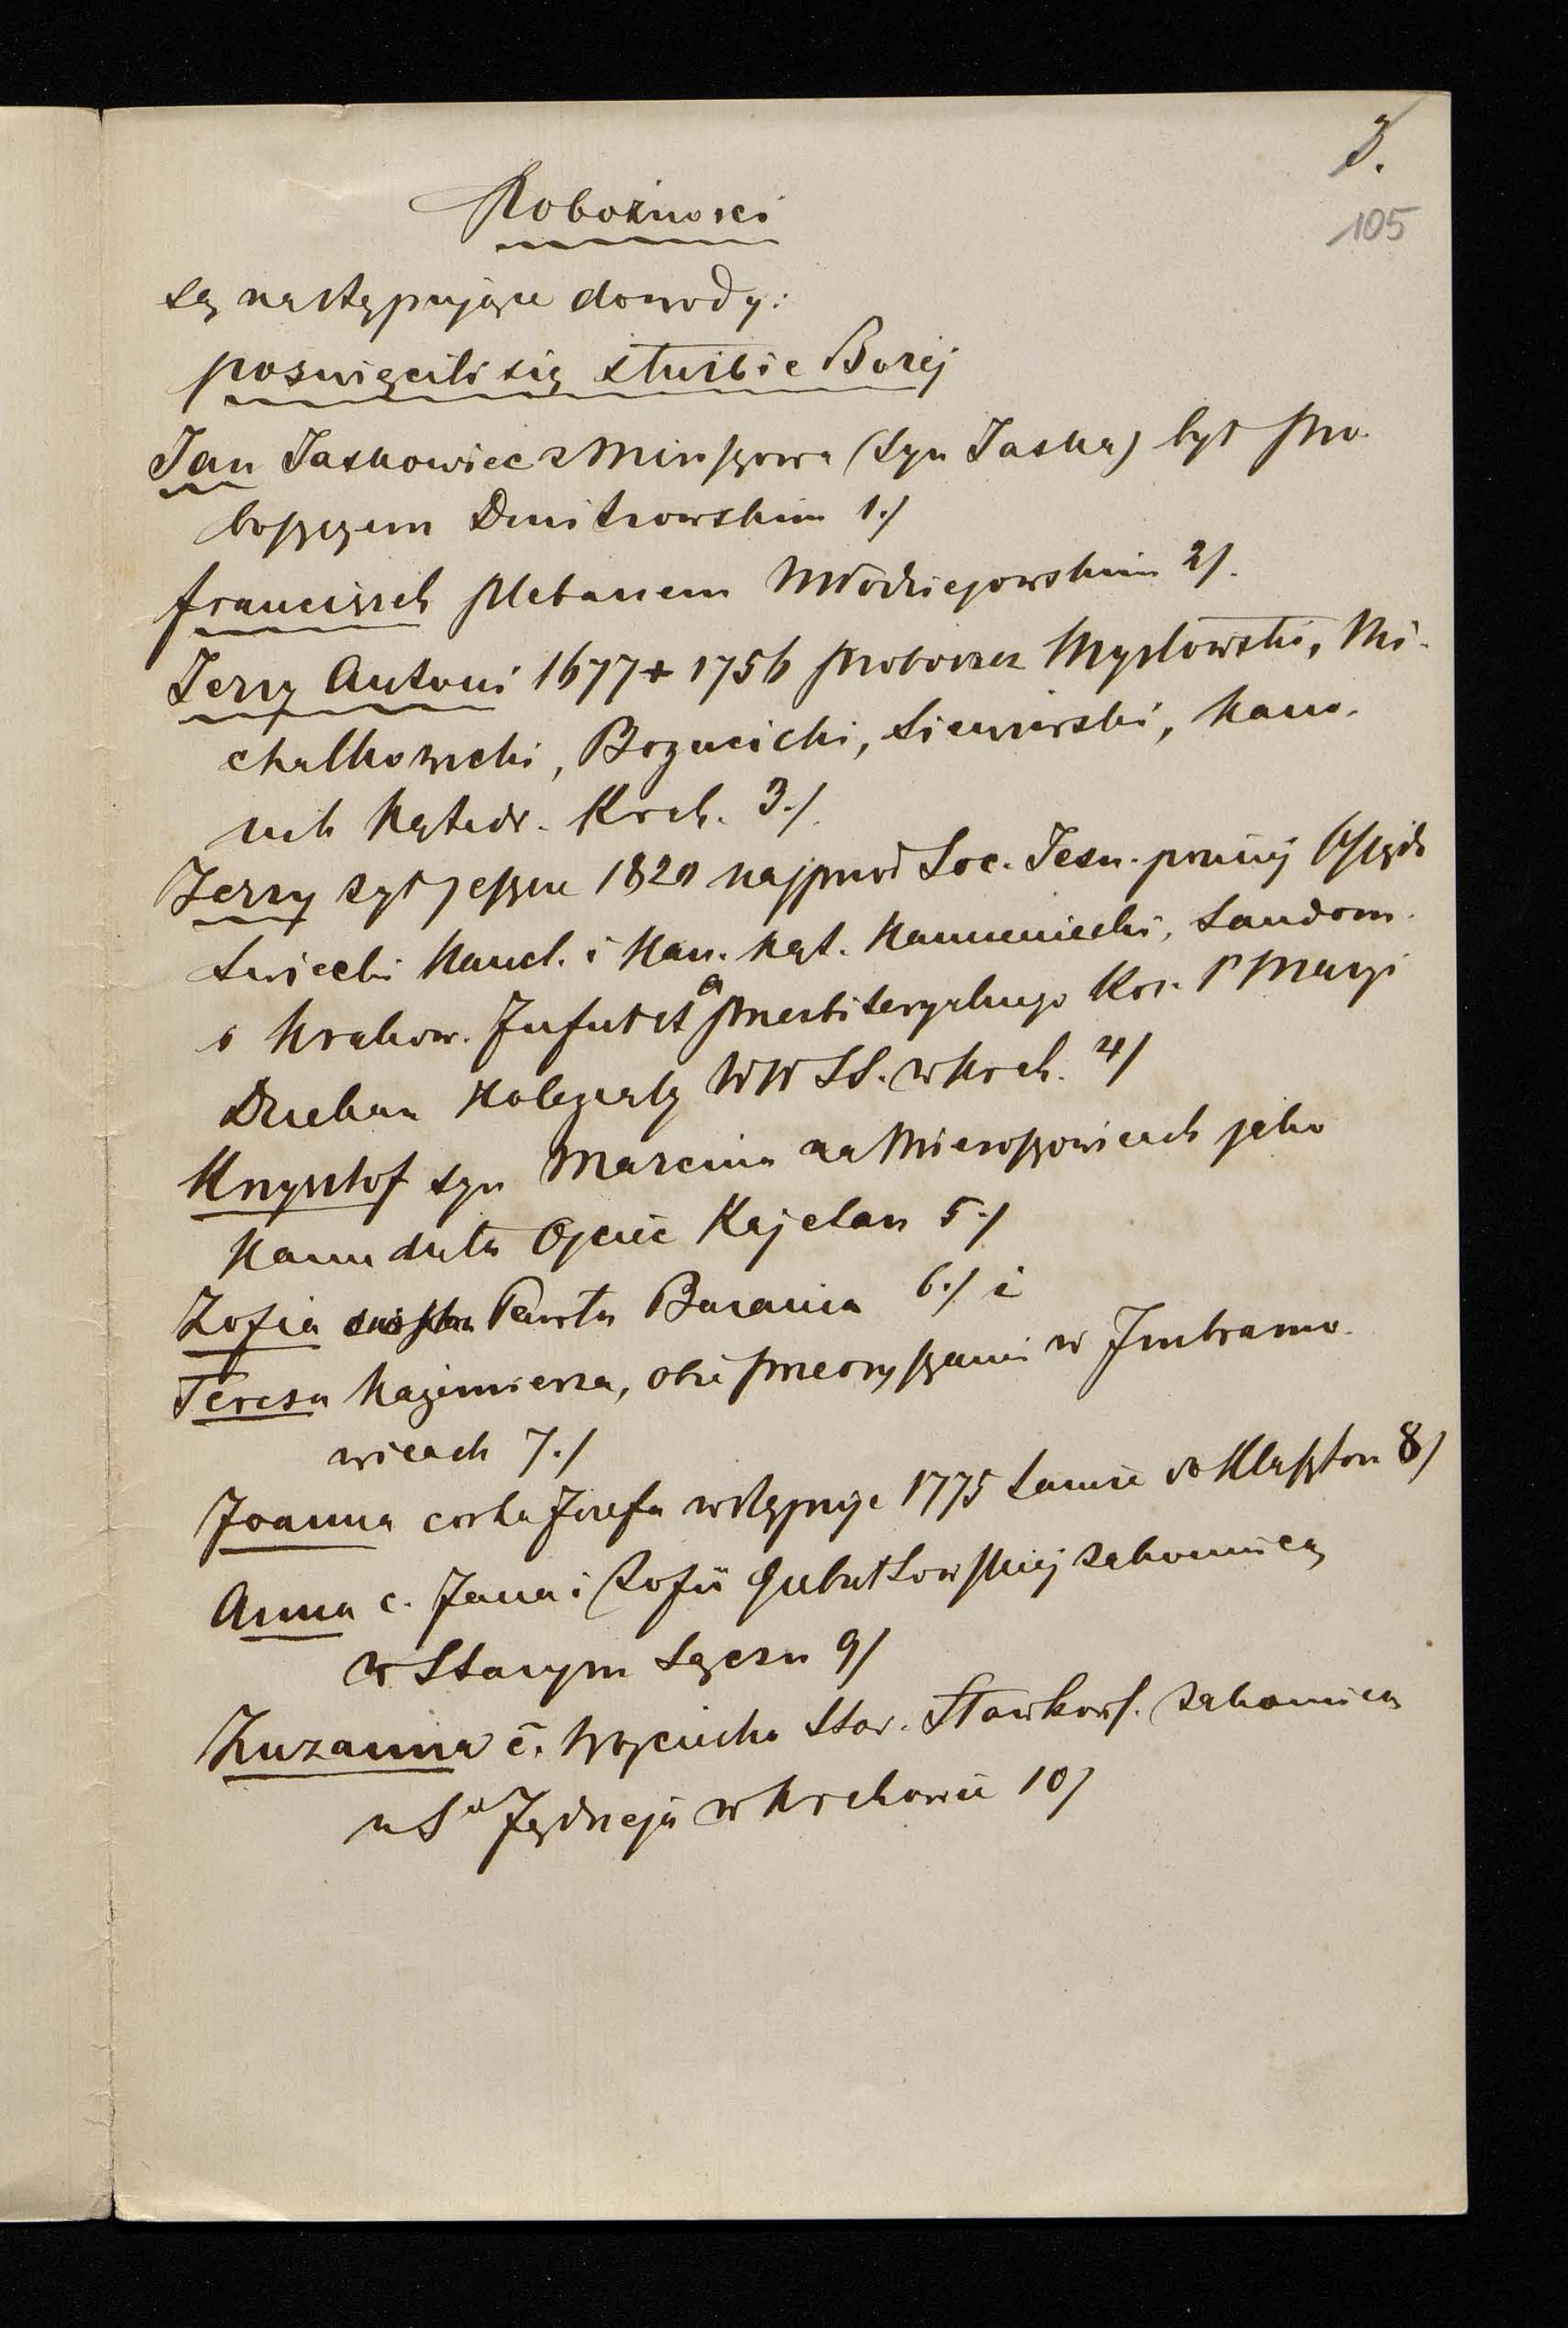 3.
105
Pobożności
są następujące dowody:
poświęcili się służbie Bożej
Jan Jaskowiec z Miroszowa (syn Jaska) był pro-
boszczem Dmitrowskim 1./
Franciszek plebanem Młodziejowskim 2/.
Jerzy Antoni 1677 + 1756 proboszcz Mysłowski, Mi-
chałkowicki, Bogucicki, Siewierski, Kano-
nik Katedr. Krak. 3./
Jerzy żył jeszcze 1820 najprzod Soc. Jesu. poźniej ksiądz
świecki Kancl. i Kan. Kat. Kamieniecki, Sandom.
i Krakow. Infułat a prezbiteryalnego Koś. P Maryi
Dziekan Kolegiaty WW SS. w Krak. 4/
Krzysztof syn Marcina na Mieroszowicach jako
Kameduła Ojciec Kajetan 5./
Zofia Pawła Barania 6./ i
Teresa Kazimierza, obie przeoryszami w Imbramo-
wicach 7./
Joanna corka Józefa wstępuje 1775 także do klasztoru 8/
Anna c. Jana i Zofii Gubałtowskiej zakonnicą
w Starym Sączu 9/
Zuzanna c. Wojciecha Star. Sławkows. zakonnicą
u So Jędrzeja w Krakowie 10/